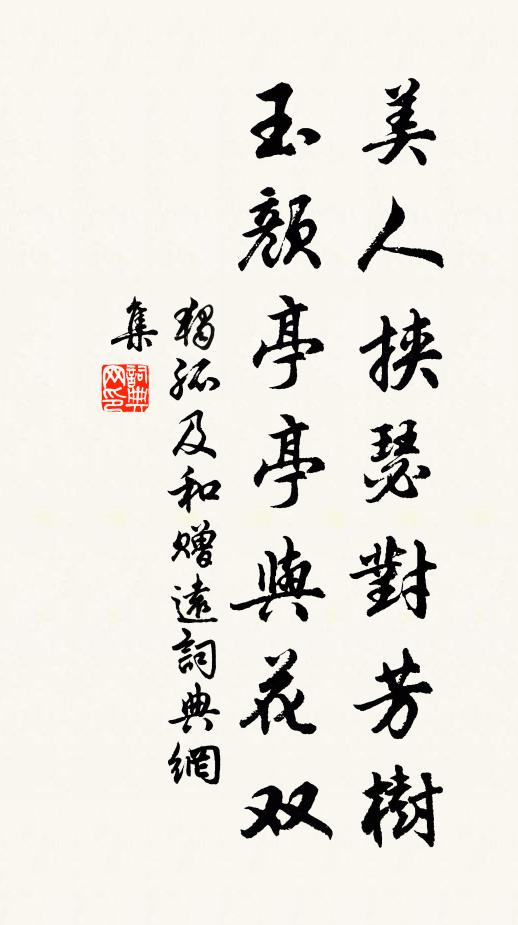 美人挾瑟對芳樹
玉顏亭亭與花双
獨孤及和贈遠詞典網
集
詞典
网印